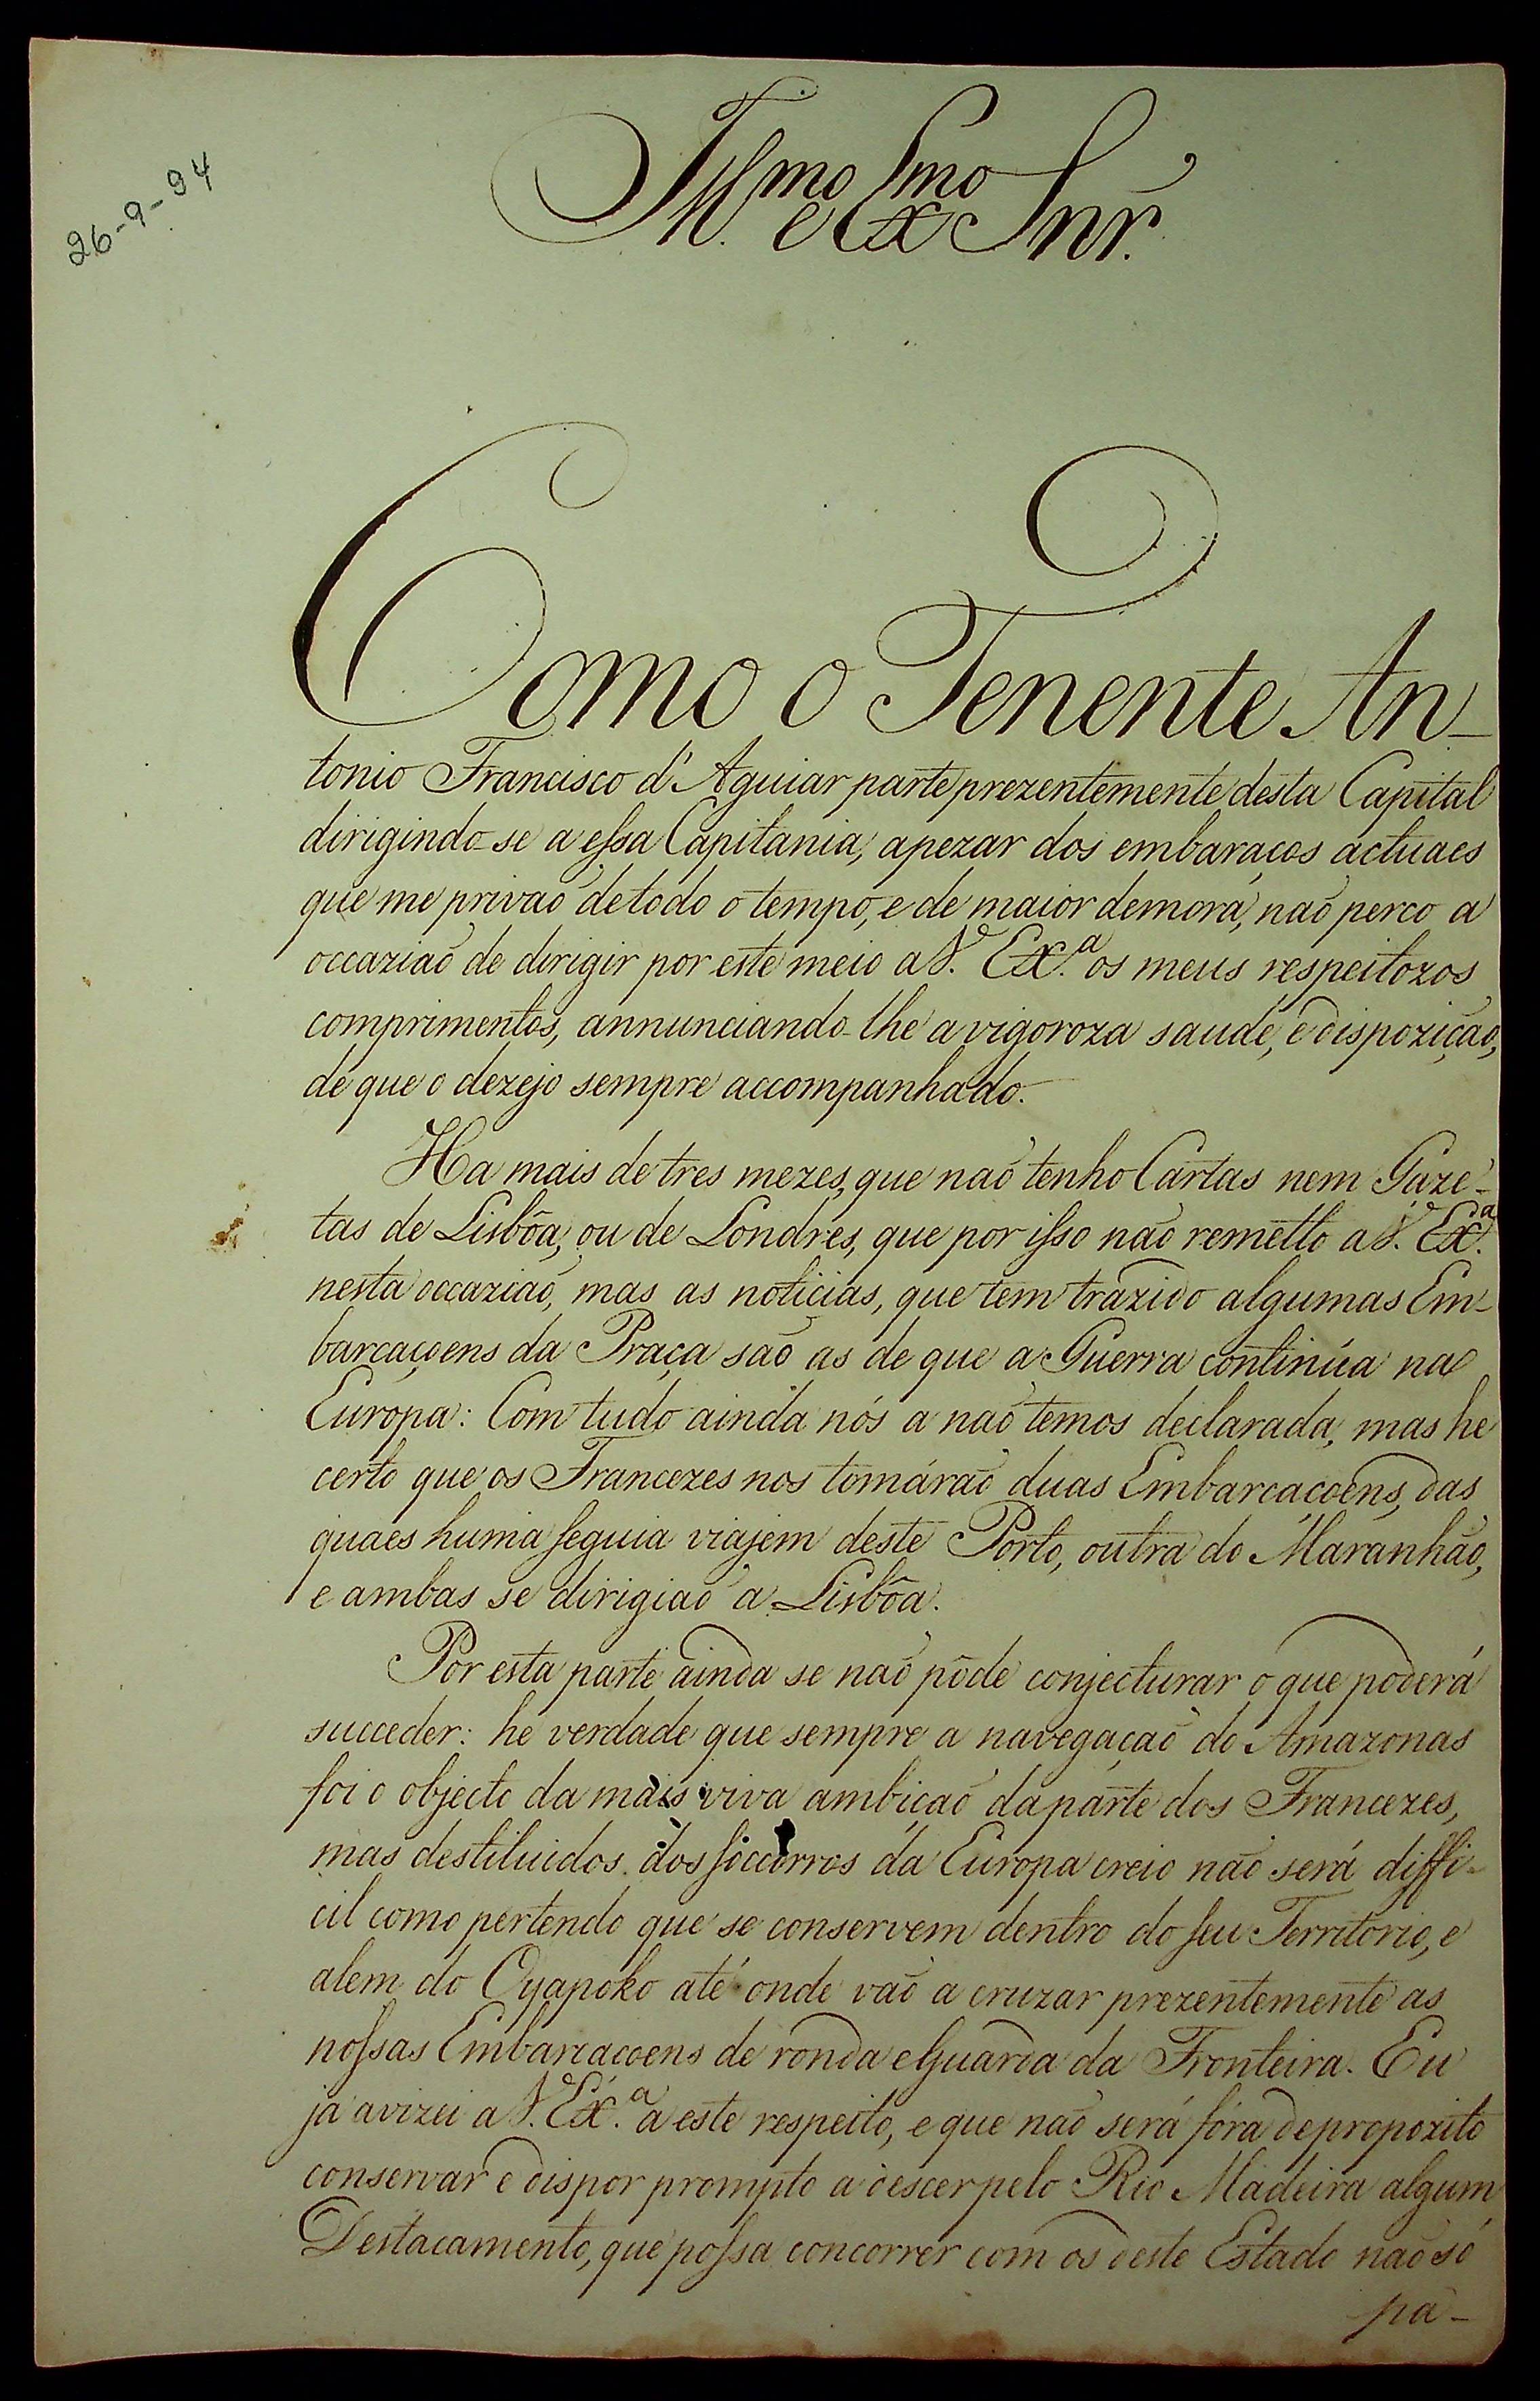 26-9-94
Ill.mo e Ex.mo Snr.
Como o Tenente An-
tonio Francisco d'Aguiar parte prezentemente desta Capital
dirigindo-se a essa Capitania, apezar dos embaraços actuaes
que me privaõ de todo o tempo, e de maior demora, naõ perco a
occaziaõ de dirigir por este meio a V. Ex.a os meus respeitozos
comprimentos, annunciando-lhe a vigoroza saude, e dispoziçaõ,
de que o dezejo sempre accompanhado.
Ha mais de tres mezes, que naõ tenho Cartas nem Gaze-
tas de Lisbôa, ou de Londres, que por isso naõ remetto a V. Ex.a
nesta occaziaõ, mas as noticias, que tem trazido algumas Em-
barcaçoens da Praça saõ as de que a Guerra continúa na
Europa: Com tudo ainda nós a naõ temos declarada, mas he
certo que os Francezes nos tomáraõ duas Embarcaçoens, das
quaes huma seguia viajem deste Porto, outra do Maranhaõ,
e ambas se dirigiaõ a Lisbôa.
Por esta parte ainda se naõ póde conjecturar o que poderá
succeder: he verdade que sempre a navegaçaõ do Amazonas
foi o objecto da mais viva ambiçaõ da parte dos Francezes,
mas destituidos dos soccorros da Europa creio naõ será diffi-
cil como pertendo que se conservem dentro do seu Territorio, e
alem do Oyapoko até onde vaõ a cruzar prezentemente as
nossas Embarcaçoens de ronda e Guarda da Fronteira. Eu
já avizei a V. Ex.a a este respeito, e que naõ será fóra de propozito
conservar e dispor prompto a descer pelo Rio Madeira algum
Destacamento, que possa concorrer com os deste Estado naõ só
pa-